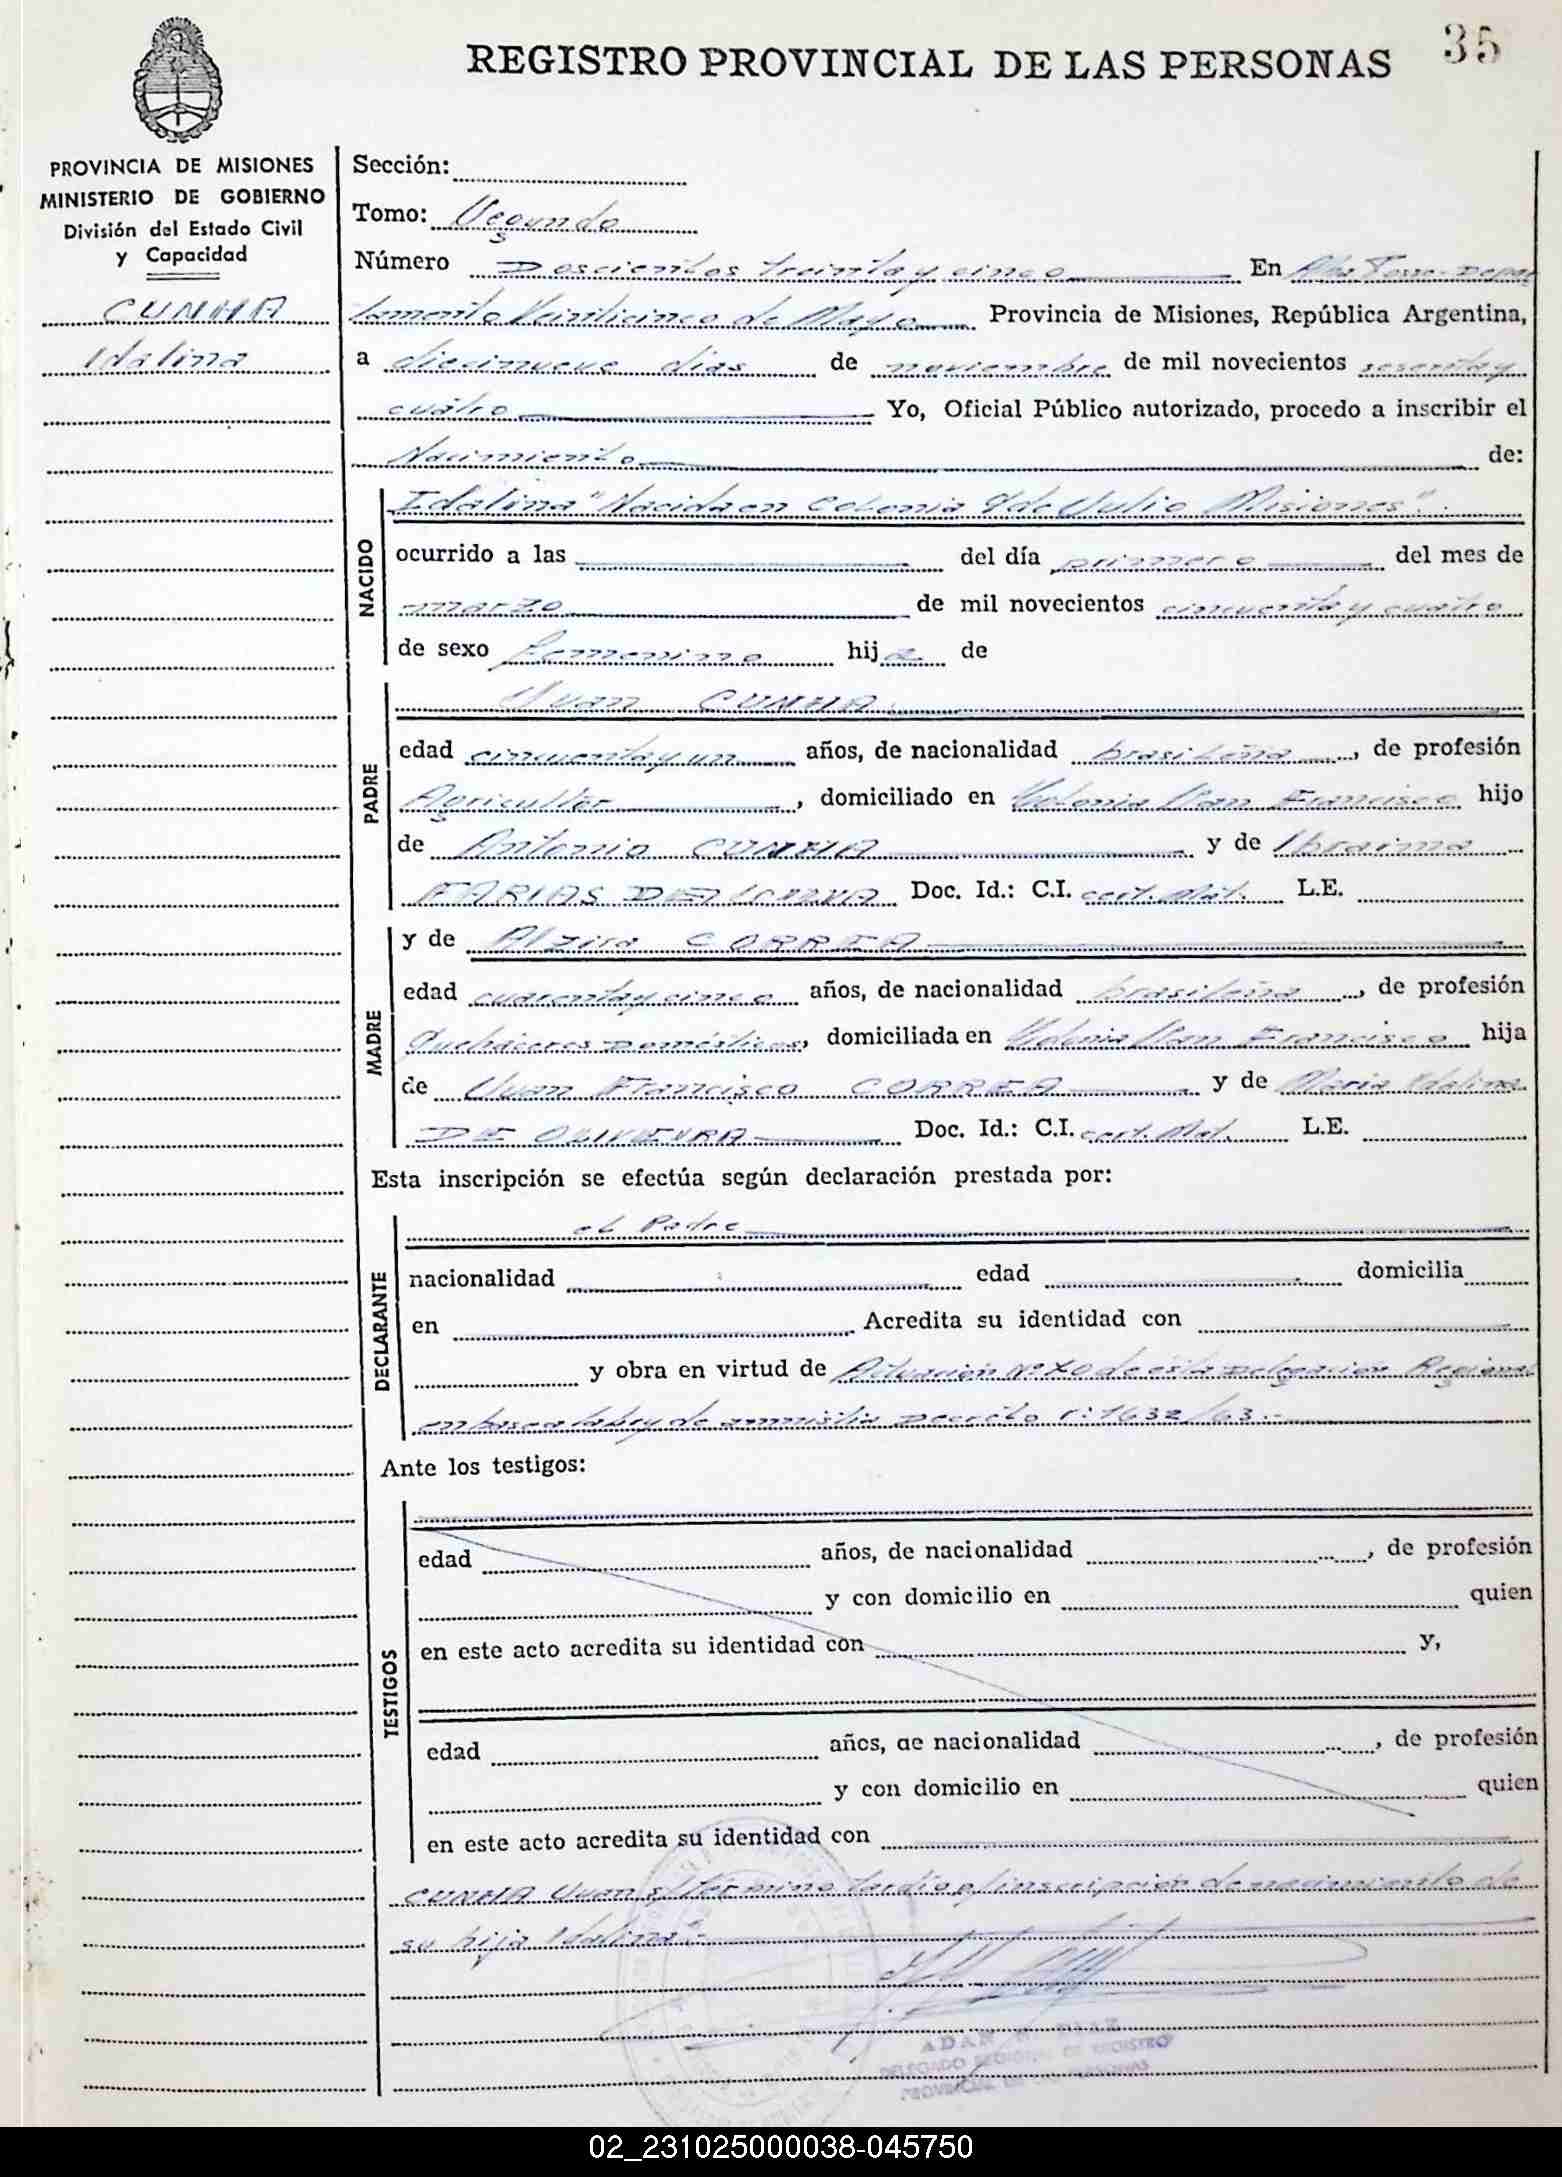 35
REGISTRO PROVINCIAL DE LAS PERSONAS
PROVINCIA DE MISIONES
MINISTERIO DE GOBIERNO
División del Estado Civil
y Capacidad
CUNHA
Idalina
Sección:
Tomo: Segundo
Número Doscientos treinta y cinco En Alba Posse - Depar
tamento Veinticinco de Mayo Provincia de Misiones, República Argentina,
a diecinueve días de noviembre de mil novecientos sesenta y
cuatro Yo, Oficial Público autorizado, procedo a inscribir el
Nacimiento de:
NACIDO
Idalina "Nacida en Colonia 9 de Julio Misiones".
ocurrido a las del día primero del mes de
marzo de mil novecientos cincuenta y cuatro
de sexo femenino hija de
PADRE
Juan CUNHA
edad cincuenta y un años, de nacionalidad brasileña, de profesión
Agricultor, domiciliado en Colonia San Francisco hijo
de Antonio CUNHA y de Ibraima
FARIAS DE CUNHA Doc. Id.: C.I. cert. Mat. L.E.
MADRE
y de Alzira CORREA
edad cuarenta y cinco años, de nacionalidad brasileña, de profesión
Quehaceres Domésticos, domiciliada en Colonia San Francisco hija
de Juan Francisco CORREA y de Maria Idalina
DE OLIVEYRA Doc. Id.: C.I. cert. Mat. L.E.
Esta inscripción se efectúa según declaración prestada por:
DECLARANTE
el Padre
nacionalidad edad domicilia
en Acredita su identidad con
y obra en virtud de Actuación Nº 70 de esta Delegación Regional
en base a la ley de amnistia Decreto 1632/63.-
Ante los testigos:
TESTIGOS
edad años, de nacionalidad , de profesión
y con domicilio en quien
en este acto acredita su identidad con y,
edad años, de nacionalidad , de profesión
y con domicilio en quien
en este acto acredita su identidad con
CUNHA Juan s/ termino tardio p/ inscripción de nacimiento de
su hija Idalina".-
ADAN DIAZ
DELEGADO REGIONAL DE REGISTRO
PROVINCIAL DE LAS PERSONAS
02_231025000038-045750